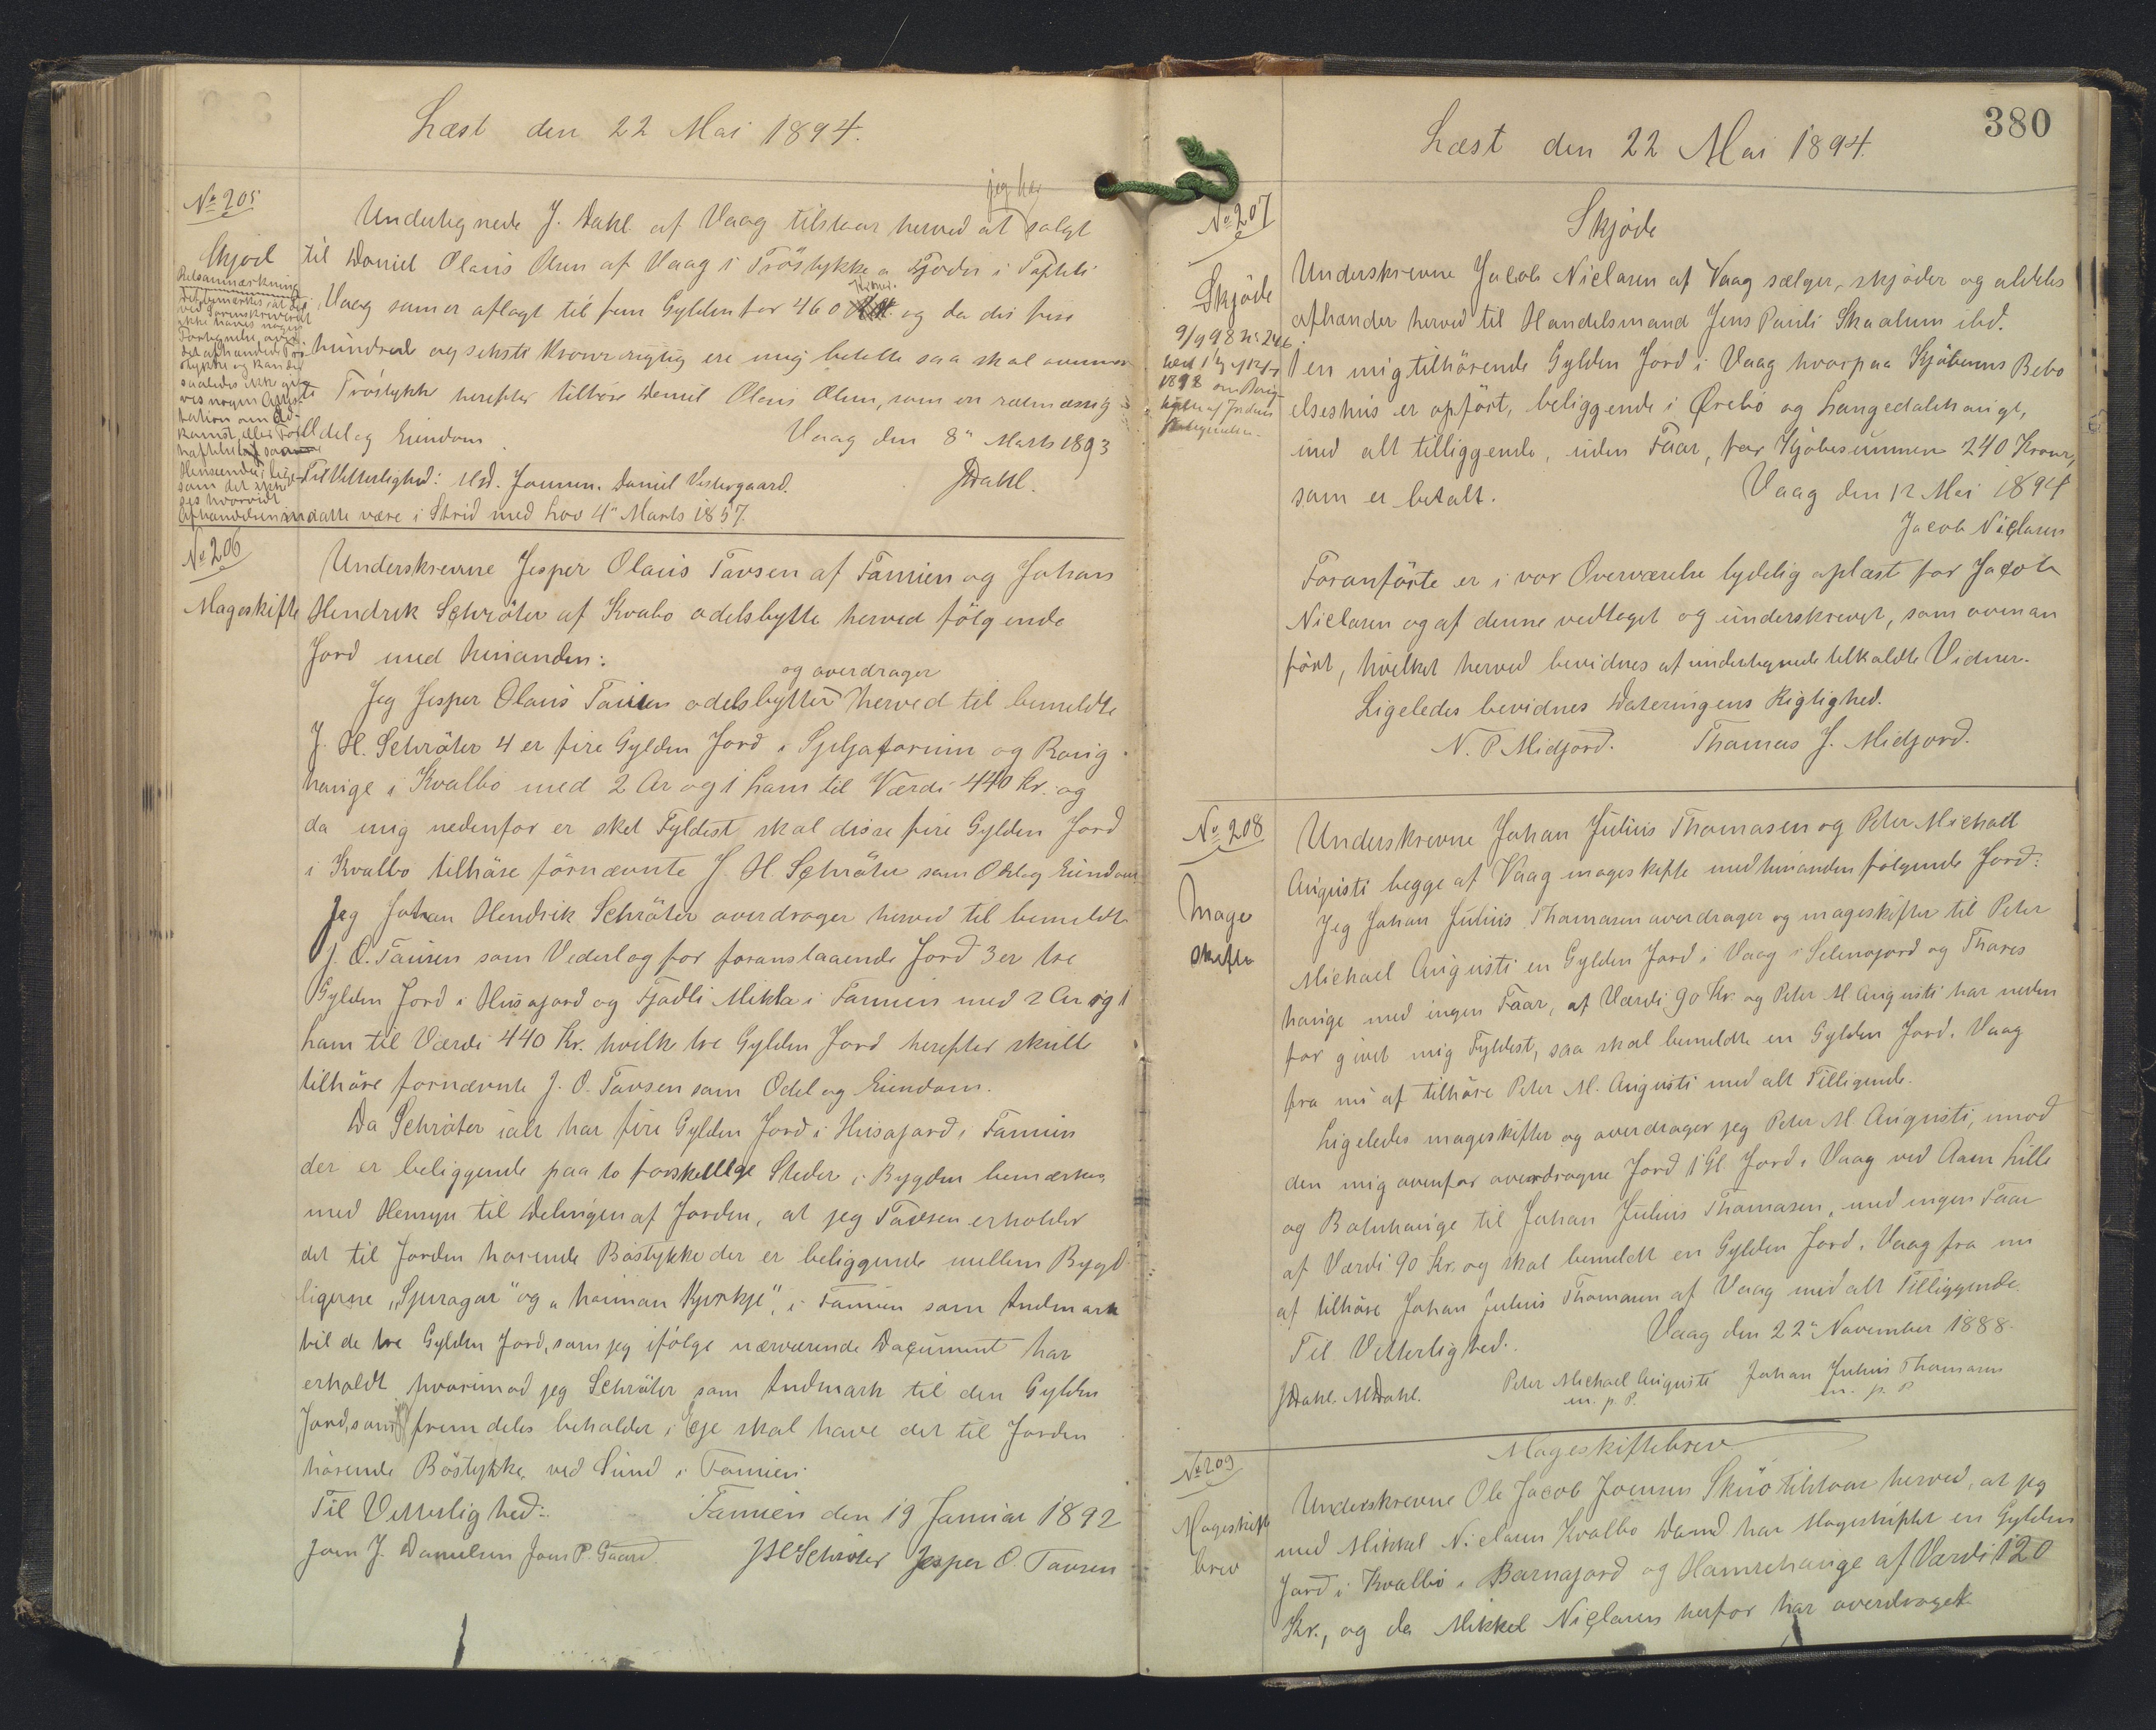 Læst den 22 Mai 1894.
No 205
Skjød
Retsanmærkning
Det bemærkes, at der
ved Sorenskriveriet
ikke haves nogen
Fortegnelse over
det afhændede Trö
stykke og kan der
saaledes ikke gi
ves nogen Attes
tation om Ad-
komst eller
Henseende, lige
som det ikke
ses hvorvidt
Afhændelsen maatte være i Strid med Lov 4de Marts 1857.
Undertegnede J. Dahl af Vaag tilstaar herved at jeg har solgt
til Daniel Olaus Olsen af Vaag i Tröstykke a
i Vaag som er aflagt til fem Gylden for 460 Kroner og da die fire
hundrede og seksti Kroner rigtig ere mig betalte saa skal ovennæv
te Tröstykke herefter tilhöre Daniel Olaus Olsen, som en retmæssig
Odel og Eiendom.
Vaag den 8de Marts 1893
JDahl.
Til Vitterlighed: Daniel Vestergaard.
No 206
Mageskifte
Underskrevne Jesper Olaus Tausen af Famien og Johan
Hendrik Schröter af Kvalbo odelsbytte herved fölgende
Jord med hinanden:
Jeg Jesper Olaus Tausen odelsbytter og overdrager herved til bemeldte
J. H. Schröter 4 er fire Gylden Jord i og
hauge i Kvalbö med 2 Ær og 1 Lam til Værdi 440 Kr. og
da mig nedenfor er sket Fyldest skal disse fire Gylden Jord
i Kvalbo tilhöre fornævnte J. H. Schröter som Odel og Eiendom
Jeg Johan Hendrik Schröter overdrager herved til bemeldte
J. O. Tausen som Vederlag for foranstaaende Jord 3 er tre
Gylden Jord i Husajord og Fjadli Mikla i Famien med 2 Ær og 1
Lam til Værdi 440 Kr. hvilke tre Gylden Jord herefter skulle
tilhöre fornævnte J. O. Tausen som Odel og Eiendom.
Da Schröter ialt har fire Gylden Jord i Husajord i Famien
der er beliggende paa to forskellige Steder i Bygden bemærkes
med Hensyn til Delingen af Jorden, at jeg Tausen erholder
det til Jorden hörende Böstykke der er beliggende mellem Bygd
ligerne „Spuragar" og „ i Famien som Indmark
til de tre Gylden Jord, som jeg ifölge nærværende Document har
erholdt hvorimod jeg Schröter som Indmark til den Gylden
Jord, som jeg fremdeles beholder i Eje skal have det til Jorden
hörende Böstykke ved Sund i Famien.
Til Vitterlighed:
Famien den 19 Januar 1892
Joen J. Danielsen Joen P. Gaard.
JHSchröter Jesper O. Tausen
380
Læst den 22 Mai 1894.
No 207
Skjöde
9/9 98 No 246
1898
Skjöde
Underskrevne Jacob Niclasen af Vaag sælger, skjöder og aldeles
afhænder herved til Handelsmand Jens Pauli Skaalum ibd.
1 en mig tilhörende Gylden Jord i Vaag hvorpaa Kjöberens Bebo
elseshus er opfört, beliggende i Örebö og Langedalshauge,
med alt tilliggende, uden Faar, for Kjöbesummen 240 Kroner,
som er betalt.
Vaag den 12 Mai 1894
Jacob Niclasen
Foranförte er i vor Overværelse tydelig oplæst for Jacob
Niclasen og af denne vedtaget og underskrevet, som ovenan
fört, hvilket herved bevidnes af undertegnede tilkaldte Vidner.
Ligeledes bevidnes Dateringens Rigtighed.
N. P. Midjord. Thomas J. Midjord.
No 208
Mage
skifte
Underskrevne Johan Julius Thomasen og Peter Michael
Augusti begge af Vaag mageskifte med hinanden fölgende Jord:
Jeg Johan Julius Thomasen overdrager og mageskifter til Peter
Michael Augusti en Gylden Jord i Vaag i Selmajord og Thares
hauge med ingen Faar, af Værdi 90 Kr. og Peter M Augusti har neden
for givet mig Fyldest, saa skal bemeldte en Gylden Jord i Vaag
fra nu af tilhöre Peter M. Augusti med alt Tilligende.
Ligeledes mageskifter og overdrager jeg Peter M. Augusti, imod
den mig ovenfor overdragne Jord 1 Gl. Jord i Vaag ved Aam Lille
og Botnhauge til Johan Julius Thomasen, med ingen Faar
af Værdi 90 Kr. og skal bemeldt en Gylden Jord i Vaag fra nu
af tilhöre Johan Julius Thomasen af Vaag med alt Tilliggende.
Til Vitterlighed.
Vaag den 22de November 1888.
JDahl. MDahl.
Peter Michael Augusti Johan Julius Thomasen
m. p. P. m. p. P
No 209
Mageskifte
brev
Mageskiftebrev
Underskrevne Ole Jacob Joensen Skuö tilstaar herved, at jeg
med Mikkel Niclasen Kvalbö Dand har Mageskiftet en Gylden
Jord i Kvalbö i Barnajord og Hamrehauge af Værdi 120
Kr., og da Mikkel Niclasen herfor har overdraget